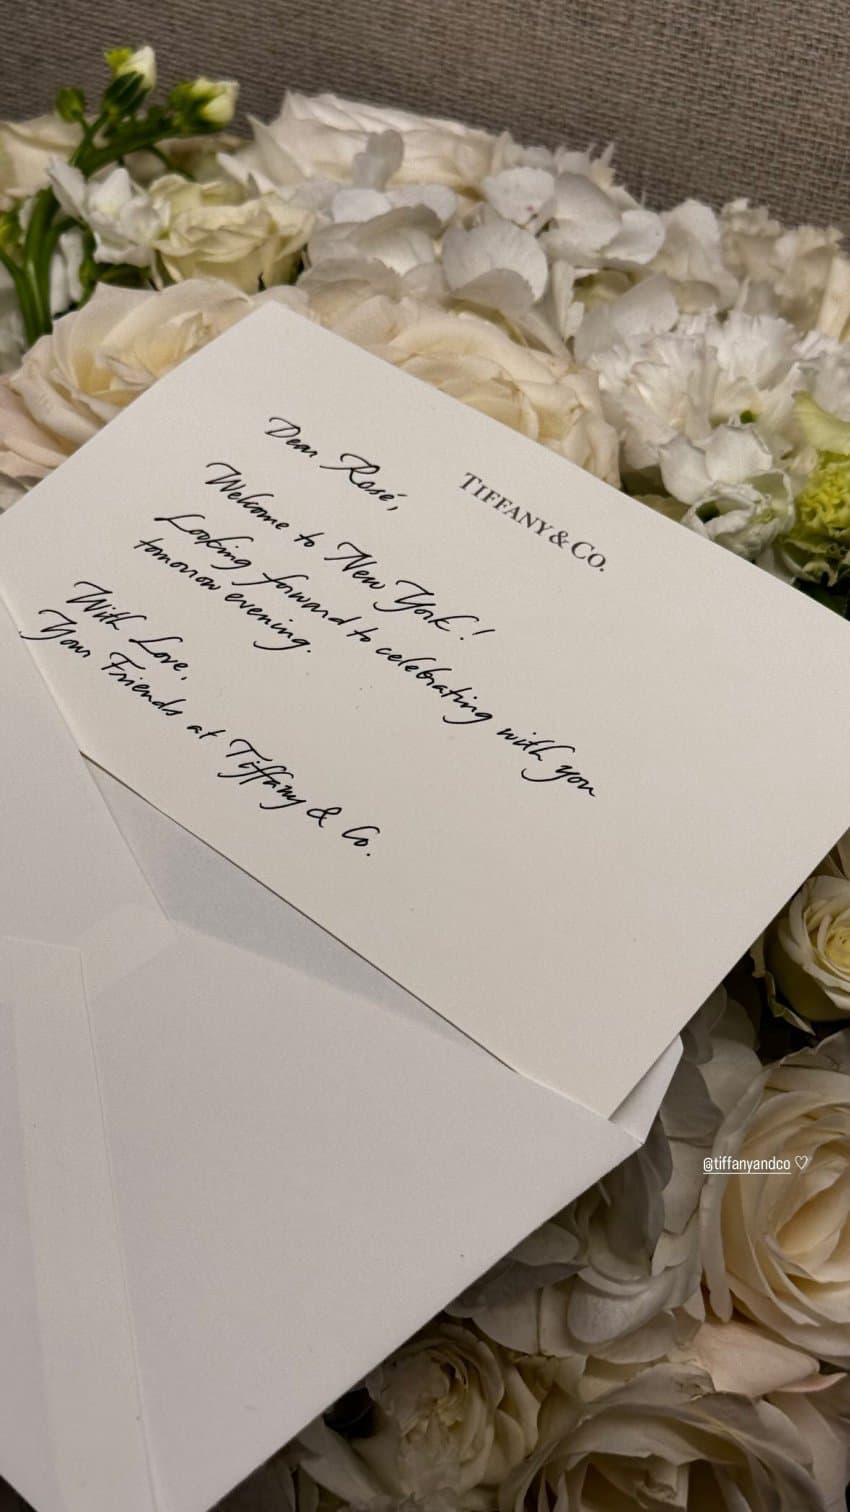 TIFFANY & CO.
Dear Rosé,
Welcome to New York!
Looking forward to celebrating with you
tomorrow evening.
With Love,
Your Friends at Tiffany & Co.
@tiffanyandco ♡